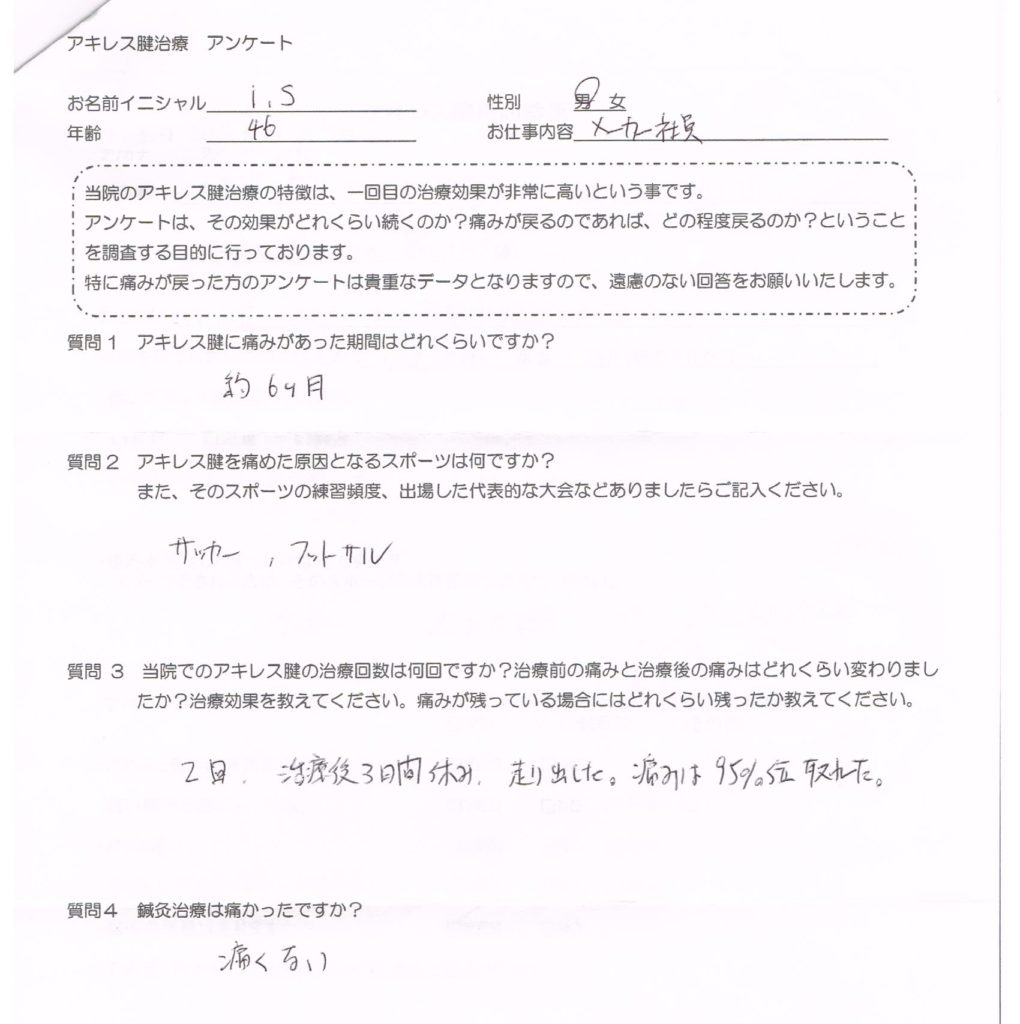 アキレス腱治療　アンケート
お名前イニシャル　i.S　性別　男　女
年齢　46　お仕事内容　メーカー社員
当院のアキレス腱治療の特徴は、一回目の治療効果が非常に高いという事です。
アンケートは、その効果がどれくらい続くのか？痛みが戻るのであれば、どの程度戻るのか？ということ
を調査する目的に行っております。
特に痛みが戻った方のアンケートは貴重なデータとなりますので、遠慮のない回答をお願いいたします。
質問１　アキレス腱に痛みがあった期間はどれくらいですか？
約6ヶ月
質問２　アキレス腱を痛めた原因となるスポーツは何ですか？
また、そのスポーツの練習頻度、出場した代表的な大会などありましたらご記入ください。
サッカー，フットサル
質問 ３　当院でのアキレス腱の治療回数は何回ですか？治療前の痛みと治療後の痛みはどれくらい変わりまし
たか？治療効果を教えてください。痛みが残っている場合にはどれくらい残ったか教えてください。
2回. 治療後3日間休み. 走り出した。痛みは95%位取れた。
質問４　鍼灸治療は痛かったですか？
痛くない